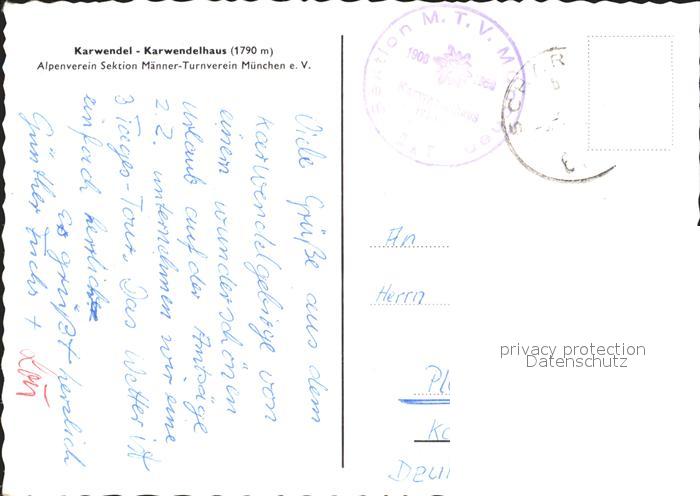 Karwendel - Karwendelhaus (1790 m)
Alpenverein Sektion Männer-Turnverein München e. V.
Viele Grüße aus dem
Karwendelgebirge von
einem wunderschönen
Urlaub auf der
z.Z. unternehmen wir eine
3 Tages-Tour. Das Wetter ist
einfach herrlich
Es grüßt herzlich
Günther +
Sektion M.T.V.
1908
An
Herrn
privacy protection
Datenschutz